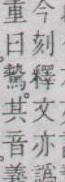 今刻釋文亦譌
重日驚其音義